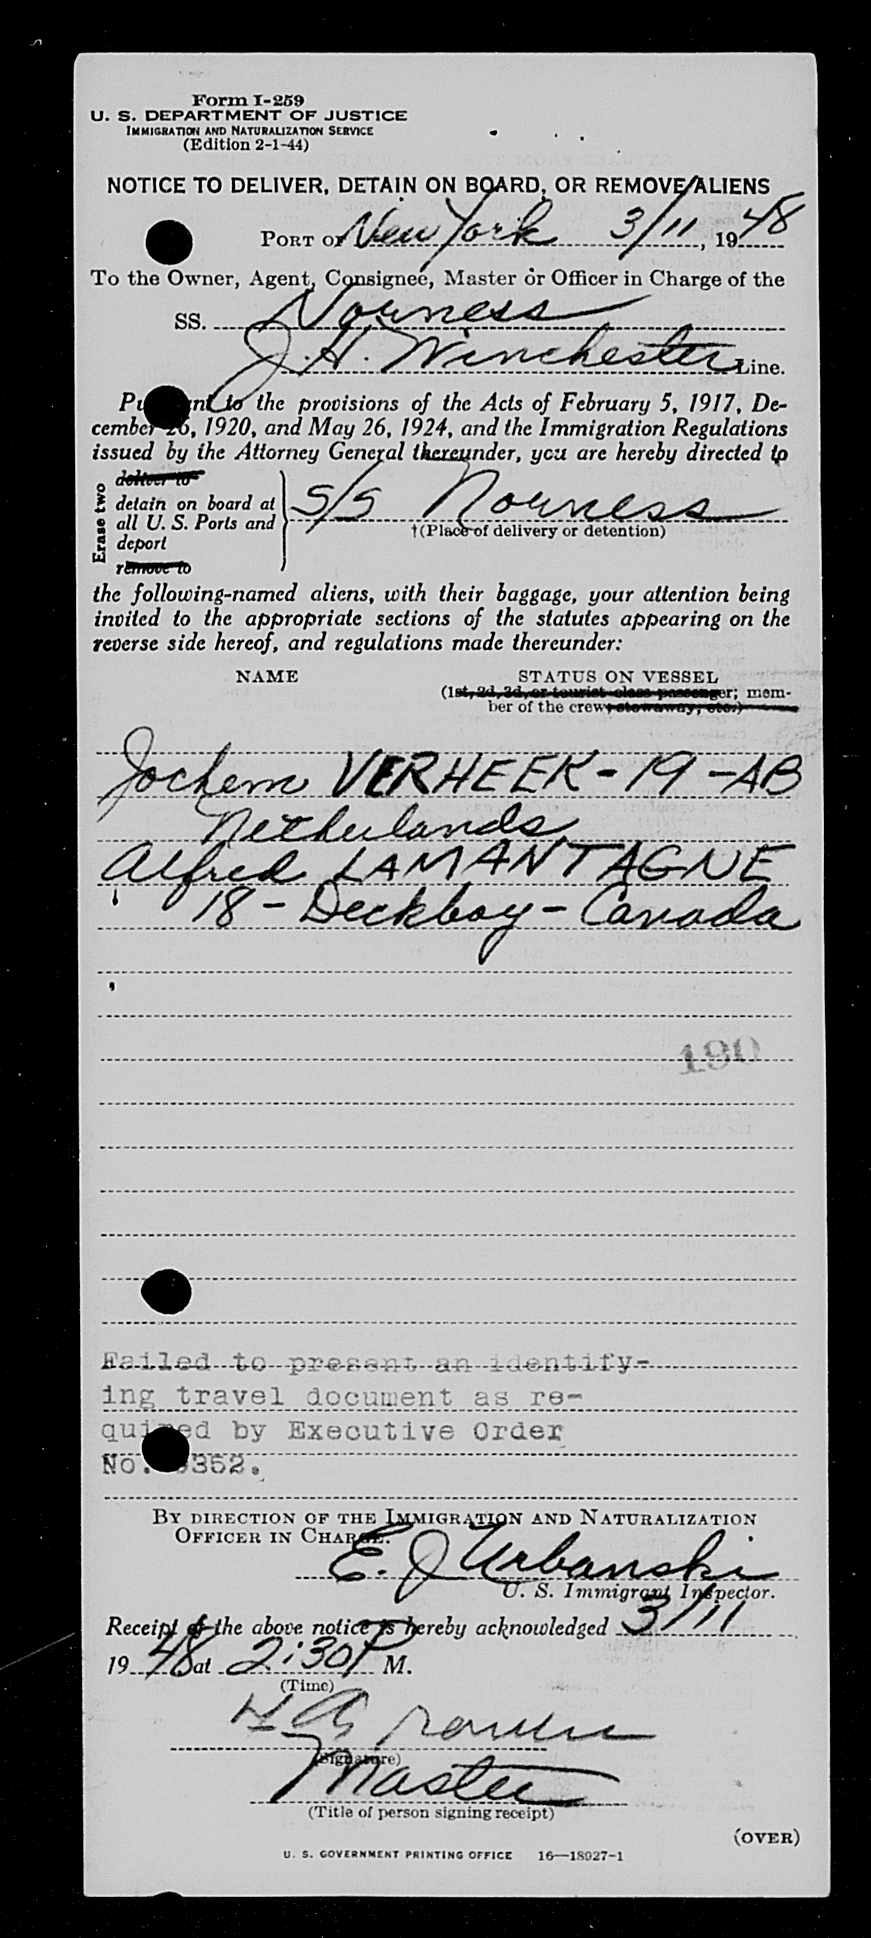 Form I-259
U. S. DEPARTMENT OF JUSTICE
IMMIGRATION AND NATURALIZATION SERVICE
(Edition 2-1-44)
NOTICE TO DELIVER, DETAIN ON BOARD, OR REMOVE ALIENS
PORT OF New York 3/11, 1948
To the Owner, Agent, Consignee, Master or Officer in Charge of the
SS. Norness
J. H. Winchester Line.
Pursuant to the provisions of the Acts of February 5, 1917, De-
cember 26, 1920, and May 26, 1924, and the Immigration Regulations
issued by the Attorney General thereunder, you are hereby directed to
Erase two
deliver to
detain on board at
all U. S. Ports and
deport
remove to
S/S Norness
†(Place of delivery or detention)
the following-named aliens, with their baggage, your attention being
invited to the appropriate sections of the statutes appearing on the
reverse side hereof, and regulations made thereunder:
NAME STATUS ON VESSEL
(1st, 2d, 3d, or tourist class passenger; mem-
ber of the crew; stowaway, etc.)
Jochem VERHEEK - 19 - AB
Netherlands
Alfred LAMANTAGNE
18 - Deckboy - Canada
190
Failed to present an identify-
ing travel document as re-
quired by Executive Order
No. 352.
BY DIRECTION OF THE IMMIGRATION AND NATURALIZATION
OFFICER IN CHARGE.
E. J Urbanski
U. S. Immigrant Inspector.
Receipt of the above notice is hereby acknowledged 3/11
1948 at 2:30 P M.
(Time)
(Signature)
Master
(Title of person signing receipt)
(OVER)
U. S. GOVERNMENT PRINTING OFFICE 16—18027-1